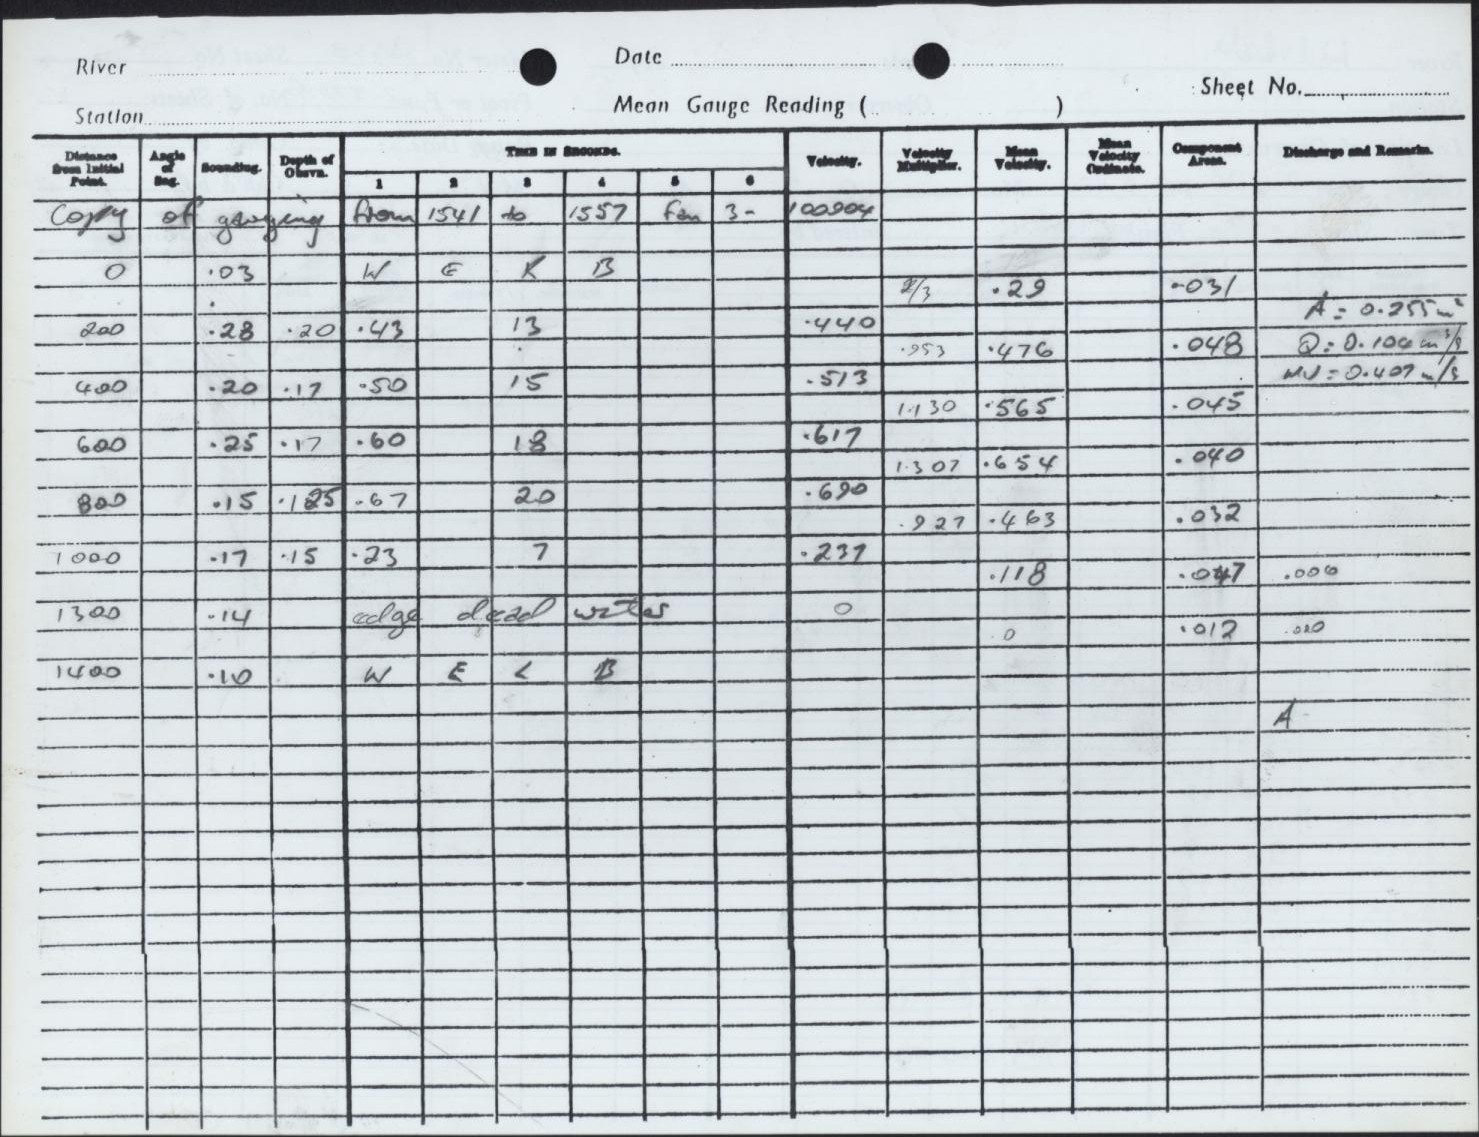 River Date
Sheet No.
Station Mean Gauge Reading ( )
Distance from Initial Point. Angle of Seg. Sounding. Depth of Observn. TIME IN SECONDS. 1 2 3 4 5 6 Velocity. Velocity Multiplier. Mean Velocity. Mean Velocity Ordinate. Component Areas. Discharge and Remarks.
Copy of gauging from 1541 to 1557 for 3- 100904
0 .03 W E R B
2/3 .29 .031
A = 0.255 m²
200 .28 .20 .43 13 .440
.953 .476 .048 Q = 0.104 m³/s
400 .20 .17 .50 15 .513 MV = 0.407 m/s
1.130 .565 .045
600 .25 .17 .60 18 .617
1.307 .654 .040
800 .15 .125 .67 20 .690
.927 .463 .032
1000 .17 .15 .23 7 .237
.118 .047 .006
1300 .14 edge dead water 0
0 .012 .000
1400 .10 W E L B
A